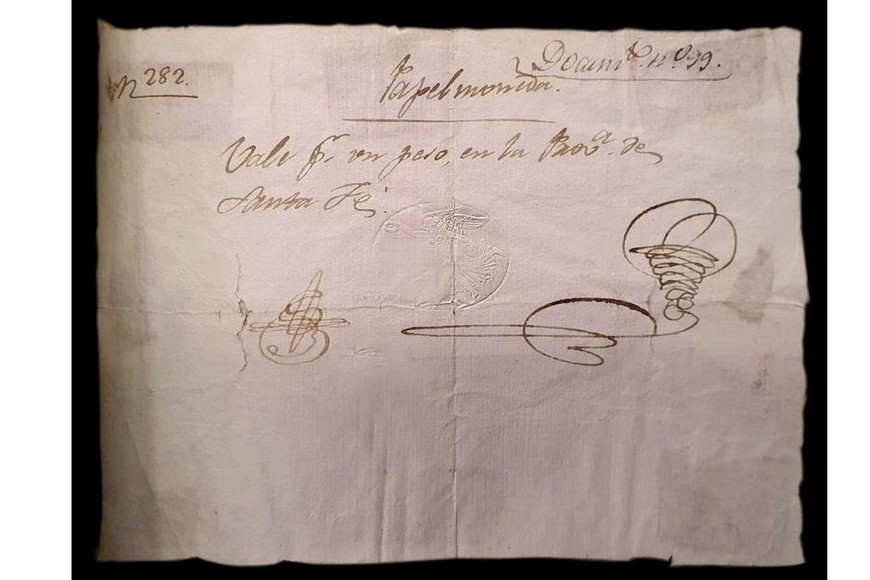 N 282.
Docum.to nº 99.
Papel moneda.
Vale pr. un peso, en la Prova. de
Santa Fé.